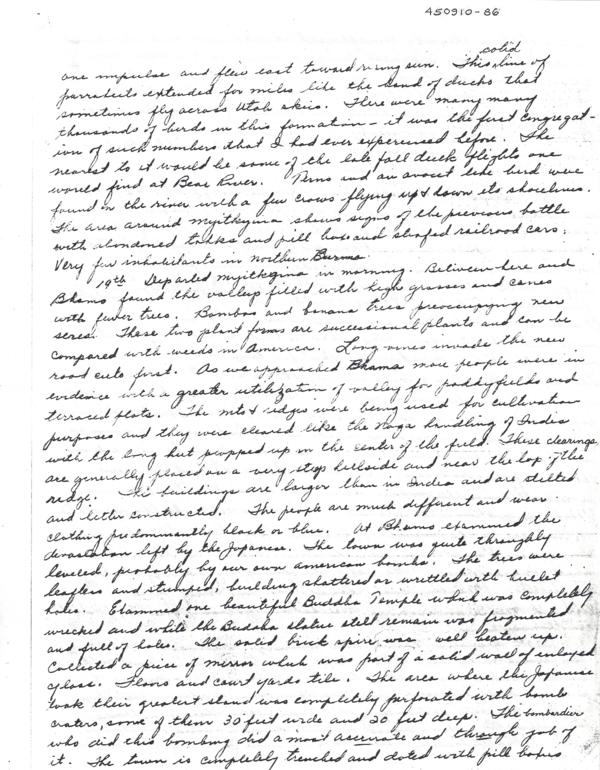 450910-86
solid
one impulse and flew east toward rising sun. This line of
parrakeets extended for miles like the band of ducks that
sometimes fly across Utah skies. There were many many
thousands of birds in this formation - it was the first congregat-
ion of such numbers that I had ever experienced before. The
nearest to it would be some of the late fall duck flights one
would find at Bear River. Terns and an avocet like bird were
found on the river with a few crows flying up & down its shorelines.
The area around myitkyina shows signs of the previous battle
with abandoned tanks and pill boxes and strafed railroad cars.
Very few inhabitants in northern Burma.
19th Departed myitkyina in morning. Between here and
Bhamo found the valleys filled with high grasses and canes
with fewer trees. Bamboo and banana trees preoccupying new
seres. These two plant forms are successional plants and can be
compared with weeds in America. Long vines invade the new
road cuts first. As we approached Bhamo more people were in
evidence with a greater utilization of valley for paddyfields and
terraced plots. The mts & ridges were being used for cultivation
purposes and they were cleared like the Naga handling of India
with the long hut propped up in the center of the field. These clearings
are generally placed on a very steep hillside and near the top of the
ridge. The buildings are larger than in India and are stilted
and better constructed. The people are much different and wear
clothing predominantly black or blue. At Bhamo examined the
devastation left by the Japanese. The town was quite throughly
leveled, probably by our own american bombs. The trees were
leafless and stumped, building shattered or with bullet
holes. Examined one beautiful Buddha Temple which was completely
wrecked and while the Buddha statue still remain was fragmented
and full of holes. The solid brick spire was well beaten up.
Collected a piece of mirror which was part of a solid wall of
glass. Floors and court yards tile. The area where the Japanese
took their greatest stand was completely perforated with bomb
craters, some of them 30 feet wide and 20 feet deep. The bombardier
who did this bombing did a most accurate and through job of
it. The town is completely trenched and doted with pill boxes